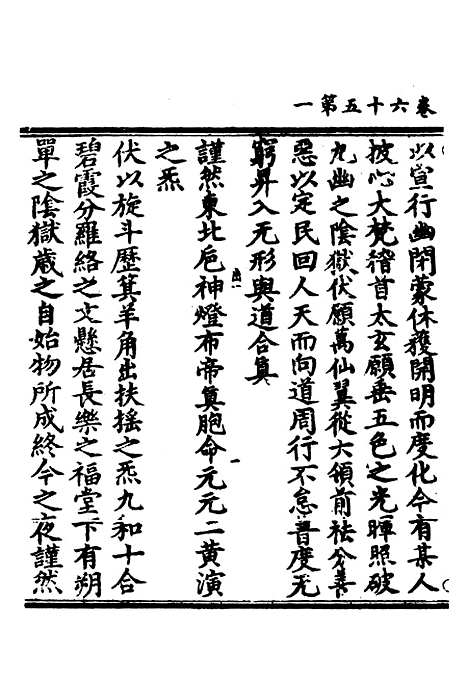 卷六十五第一
以宣行幽閉蒙休穫開明而度化今有某人
披心大梵稽首太玄願垂五色之光暉照破
九幽之陰獄伏願萬仙翼從大領前祛分善
惡以定民回人天而向道周行不怠普度无
窮昇入无形與道合真
謹然東北巵神燈布帝真胞命元元二黃演
之炁
伏以旋斗歷箕羊角出扶摇之炁九和十合
碧霞分羅絡之文懸居長樂之福堂下有朔
單之陰獄歲之自始物所成終今之夜謹然